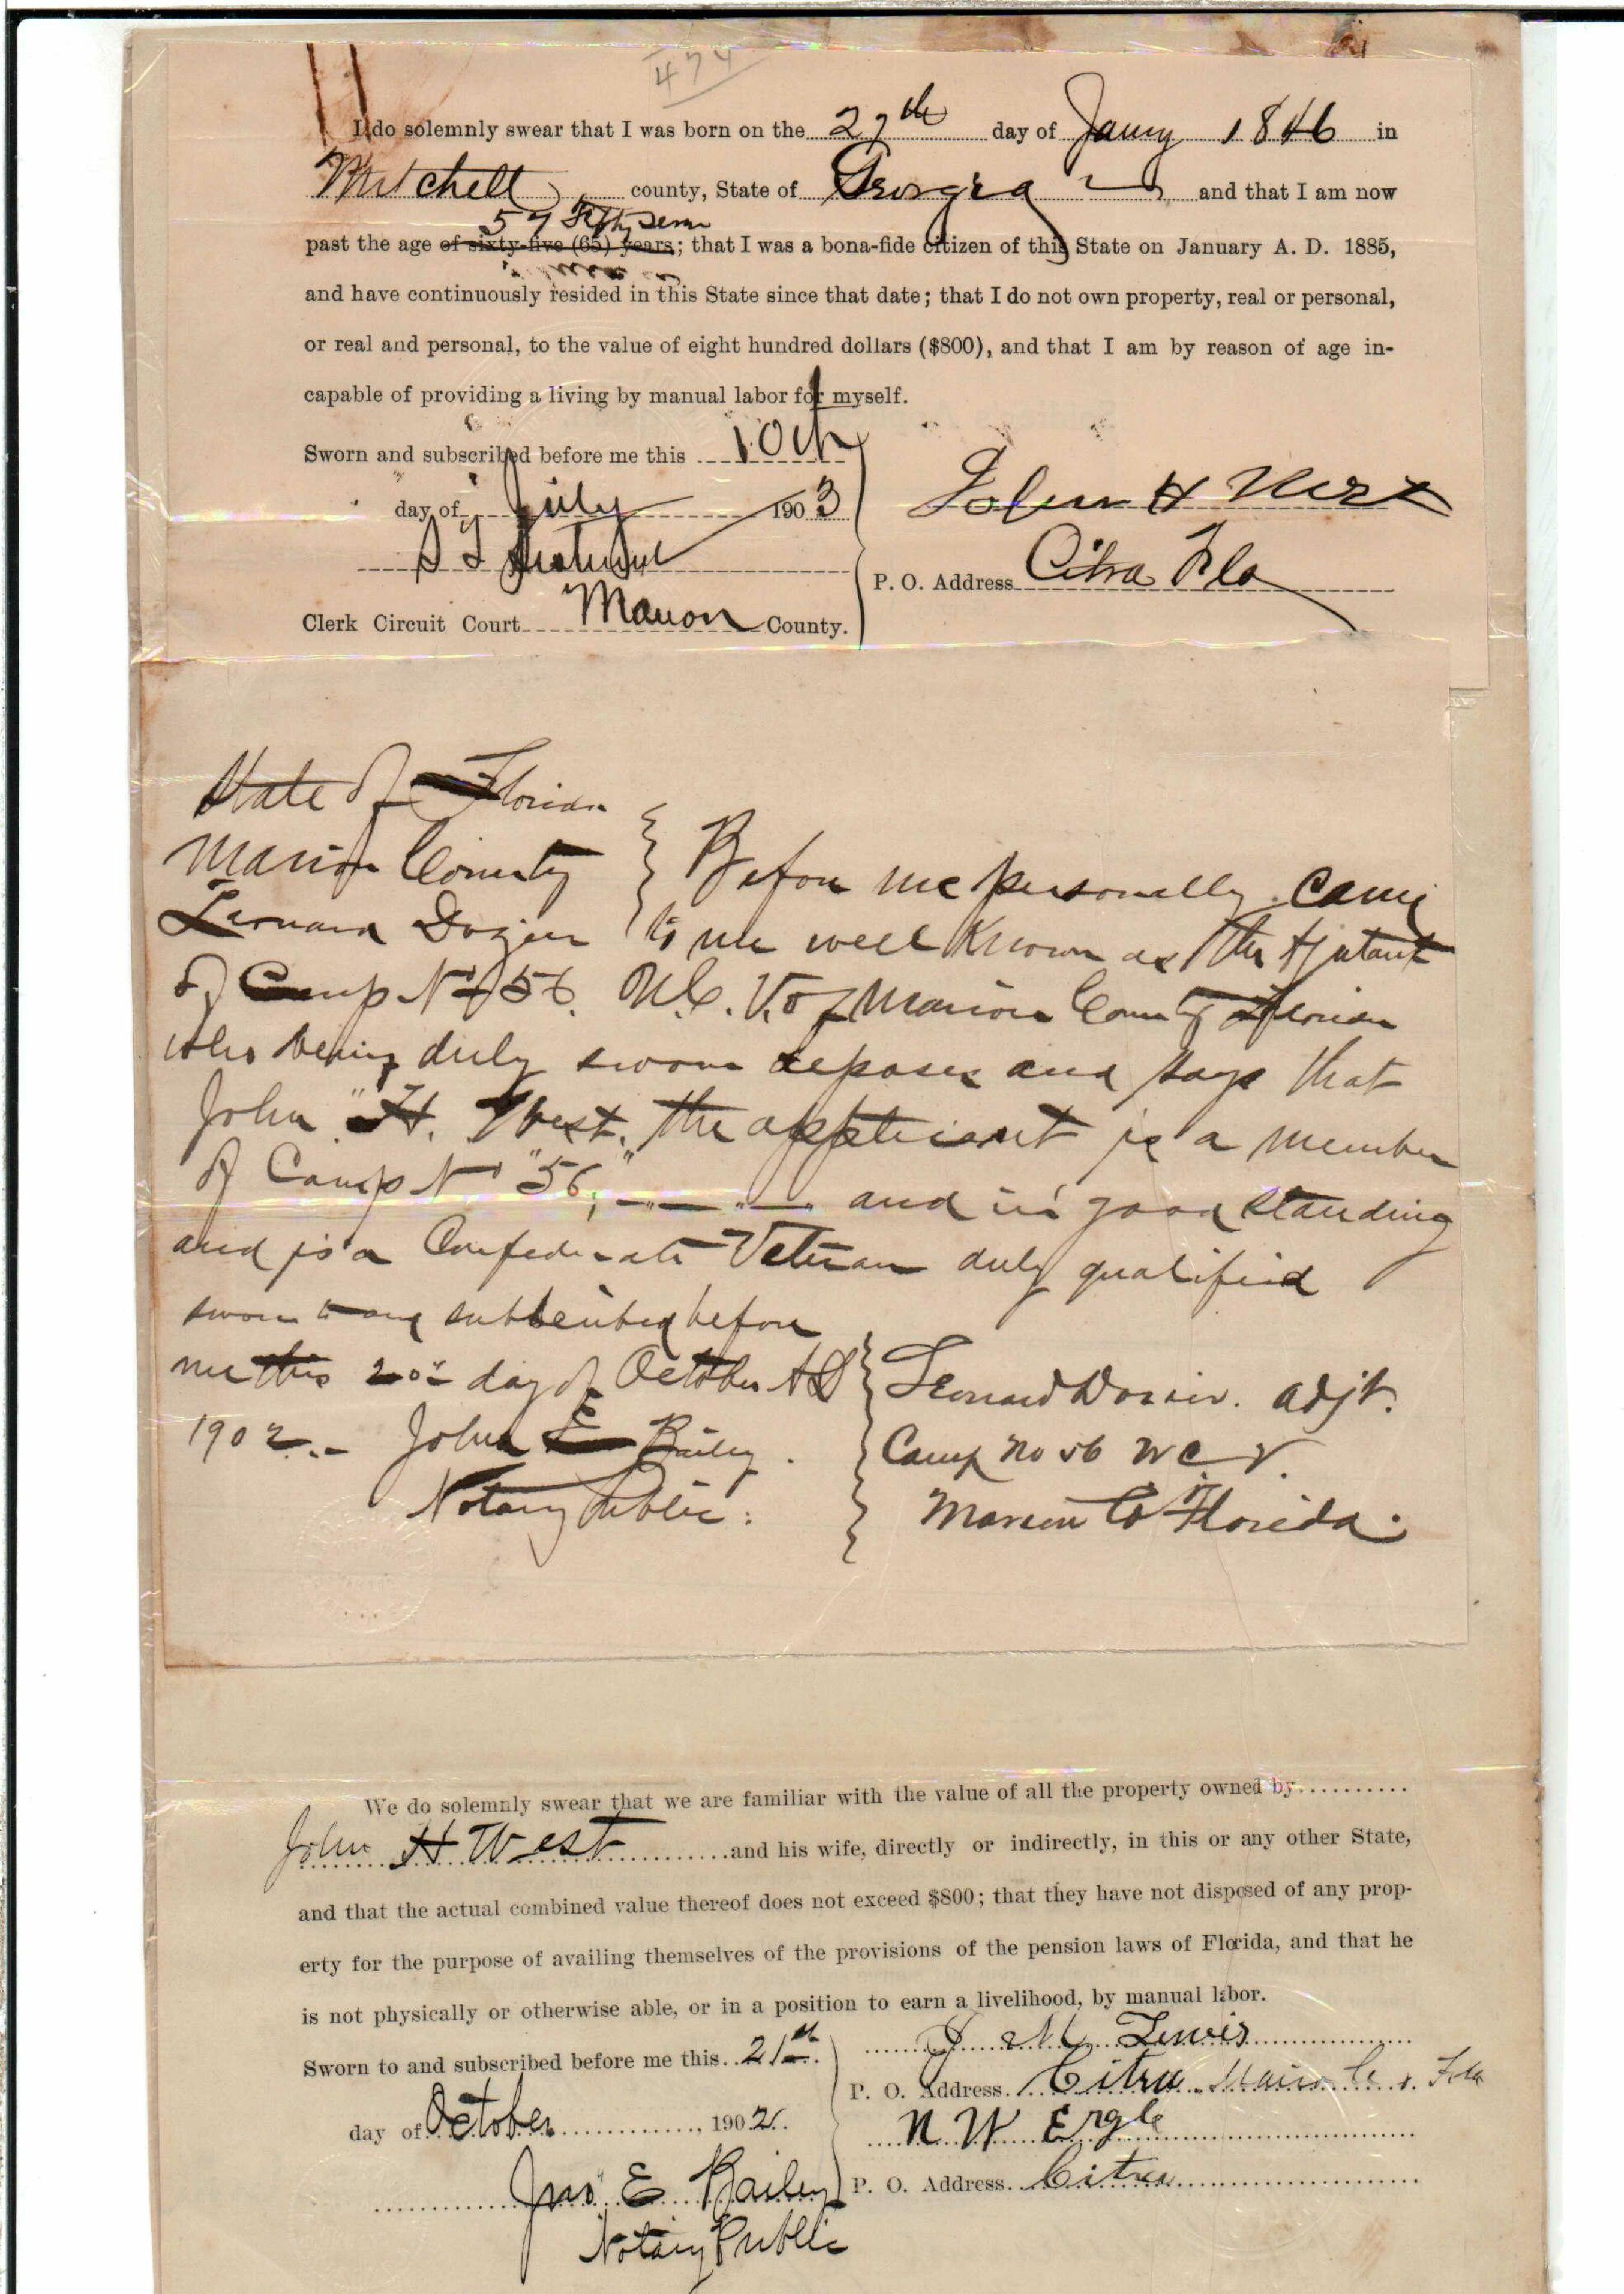 474
I do solemnly swear that I was born on the 27th day of Jauny 1846 in
Mitchell county, State of Georgia and that I am now
57 Fifty Seven
past the age of sixty-five (65) years; that I was a bona-fide citizen of this State on January A. D. 1885,
and have continuously resided in this State since that date; that I do not own property, real or personal,
or real and personal, to the value of eight hundred dollars ($800), and that I am by reason of age in-
capable of providing a living by manual labor for myself.
Sworn and subscribed before me this 10th
day of July 1903
John H West
S T
P. O. Address Citra Fla
Clerk Circuit Court Marion County.
State of Florida
Marion County } Before me personally came
Leonard Dozier to me well known as the Ajutant
of Camp No 56. U.C.V. of Marion County Florida
who being duly sworn deposes and says that
John "H. West, the applicant is a member
of Camp No "56," and in good standing
and is a Confederate Veteran duly qualified
sworn to and subscribed before
me this 20th day of October AD } Leonard Dozier. Adjt.
1902.- John E Bailey. } Camp No 56 U C V.
Notary Public. } Marion Co Florida.
We do solemnly swear that we are familiar with the value of all the property owned by
John H West and his wife, directly or indirectly, in this or any other State,
and that the actual combined value thereof does not exceed $800; that they have not disposed of any prop-
erty for the purpose of availing themselves of the provisions of the pension laws of Florida, and that he
is not physically or otherwise able, or in a position to earn a livelihood, by manual labor.
J M Lewis
Sworn to and subscribed before me this 21st
P. O. Address Citra Marion Co. Fla
day of October, 1902.
N W Ergle
Jno E Bailey P. O. Address Citra
Notary Public